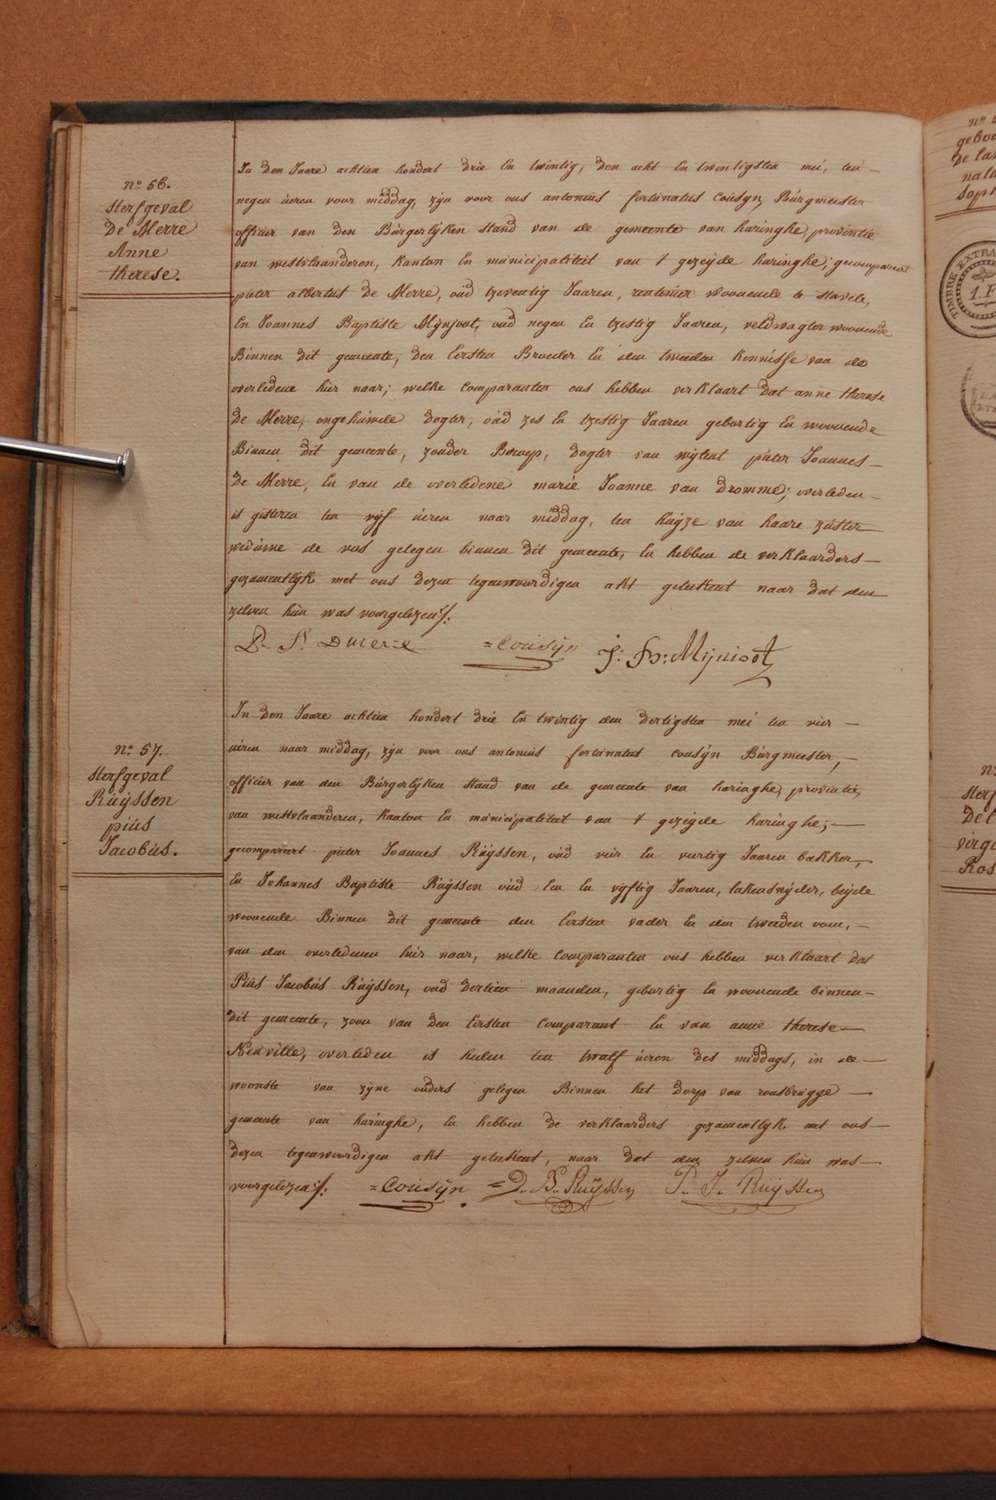 n° 56.
sterfgeval
De Merre
Anne
therese.
In den Jaare achtien hondert drie En twintig, den acht En twentigsten mei, ten
negen üeren voor middag, zijn voor ons antonius fortunatus cousijn Burgmeester
officier van den Bürgerlijken stand van de gemeente van haringhe, provintie
van westvlaanderen, kanton En municipaliteit van 't gezeijde haringhe; gecompareert
pieter albertus de Merre, oud tzeventig Jaaren, rentenier woonende te stavele,
En Joannes Baptiste Mijnjoot, oud negen En tzestig Jaaren, veldwagter woonende
Binnen dit gemeente, den Eersten Broeder En den tweeden kennisse van de
overledene hier naar; welke comparanten ons hebben verklaart dat anne therese
De Merre, ongehuwde dogter, oud zes En tzestig Jaaren gebortig En woonende
Binnen dit gemeente, zonder Beroep, dogter van wijlent pieter Joannes
De Merre, En van de overledene marie Joanne van Dromme; overleden
is gisteren ten vijf üeren naar middag, ten huijze van haare züster
weduwe de vos gelegen binnen dit gemeente, En hebben de verklaarders
gezamentlijk met ons dezen tegenwoordigen akt geteekent naar dat den
zelven hun was voorgelezen /.
P. A. Dmerre =Cousijn J: B: Mijnioot
n° 57.
sterfgeval
Rüijssen
piüs
Jacobüs.
In den Jaare achtien hondert drie En twintig den dertigsten mei ten vier
üeren naar middag, zijn voor ons antonius fortunatus cousijn Burgmeester,
officier van den Bürgerlijken stand van de gemeente van haringhe, provintie,
van westvlaanderen, kanton En municipaliteit van 't gezeijde haringhe;
gecompareert pieter Joannes Rüijssen, oud vier En viertig Jaaren bakker,
En Johannes Baptiste Rüijssen oud Een En vijftig Jaaren, lakensnijder, beijde
woonende Binnen dit gemeente den Eersten vader En den tweeden oom,
van den overledenen hier naar, welke comparanten ons hebben verklaart dat
Piüs Jacobüs Rüijssen, oud dertien maanden, gebortig En woonende binnen
dit gemeente, zoon van den Eersten comparant En van anne therese
Neuville, overleden is heden ten twalf üeren des middags, in de
woonste van zijne ouders gelegen Binnen het dorp van rousbrugge
gemeente van haringhe, En hebben de verklaarders gezamentlijk met ons
dezen tegenwoordigen akt geteekent, naar dat den zelven hun was
voorgelezen /. =Cousijn =J. B. Ruijssen P. J. Ruijssen
n°
gebo
De la
nata
Sop
TIMBRE EXTRA
1. F
n°
sterf
De
virg
Ros